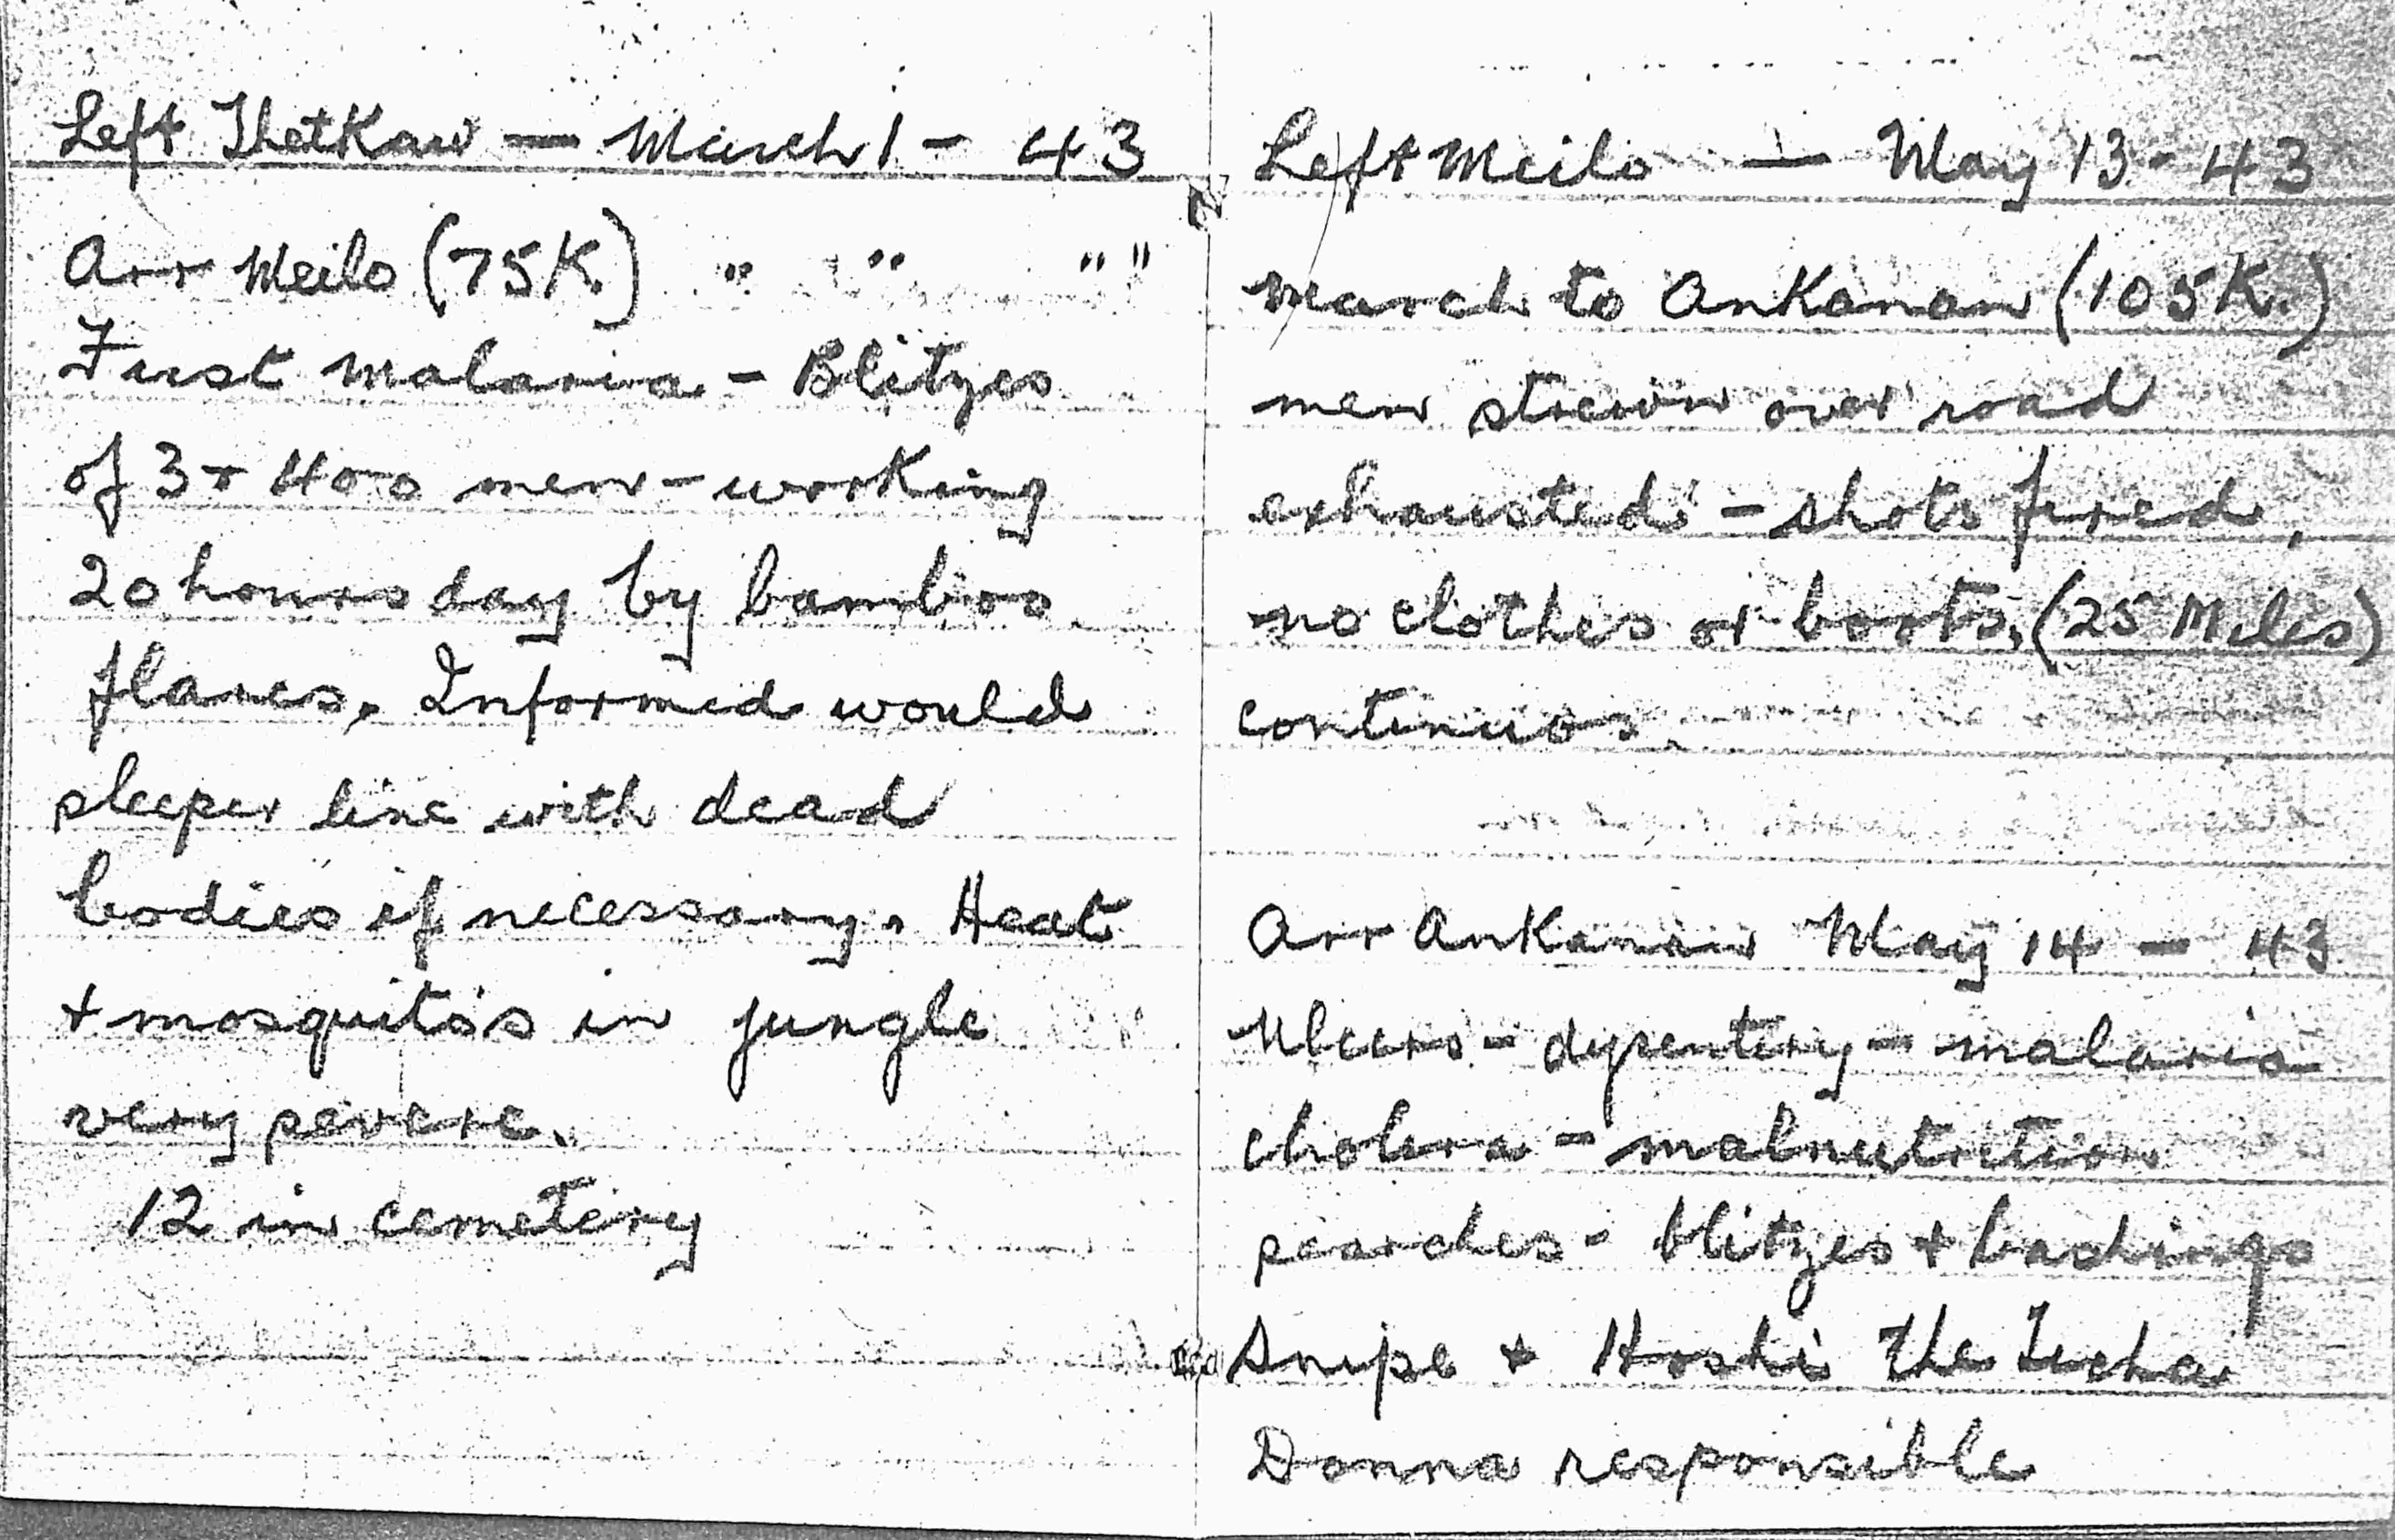 Left Thetkaw — March 1 - 43
Arr Meilo (75K.) " " " "
First malaria - Blitzes
of 3 & 400 men - working
20 hours day by bamboo
flares. Informed would
sleeper line with dead
bodies if necessary. Heat
+ mosquito's in jungle
very severe.
12 in cemetery
Left Meilo — May 13 - 43
march to Ankanan (105K.)
men strewn over road
exhausted - shots fired,
no clothes or boots. (25 Miles)
continuos.
Arr Ankanan May 14 - 43
Ulcers - dysentery - malaria
cholera - malnutrition
searches - blitzes + bashings
Snipe + Hoshi the
Donna responsible